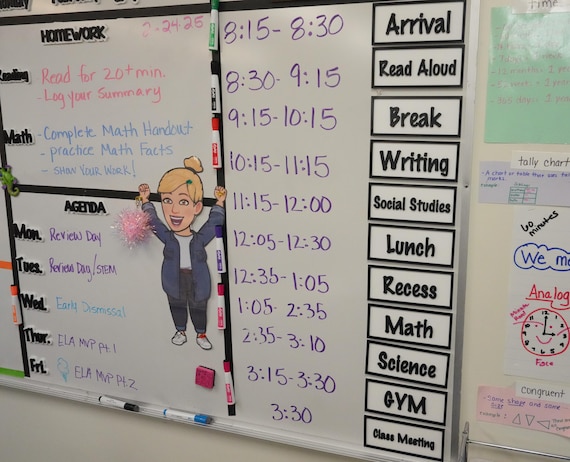 HOMEWORK
2-24-25
Reading
Read for 20+ min.
- Log your Summary
Math
- Complete Math Handout
- practice Math Facts
- SHOW YOUR WORK!
AGENDA
Mon. Review Day
Tues. Review Day/STEM
Wed. Early Dismissal
Thur. ELA MVP pt.1
Fri. ELA MVP pt.2
8:15-8:30 Arrival
8:30-9:15 Read Aloud
9:15-10:15 Break
10:15-11:15 Writing
11:15-12:00 Social Studies
12:05-12:30 Lunch
12:35-1:05 Recess
1:05-2:35 Math
2:35-3:10 Science
3:15-3:30 GYM
3:30 Class Meeting
Time
tally chart
60 minutes
Analog
Face
congruent
- Same shape and same
size
example: